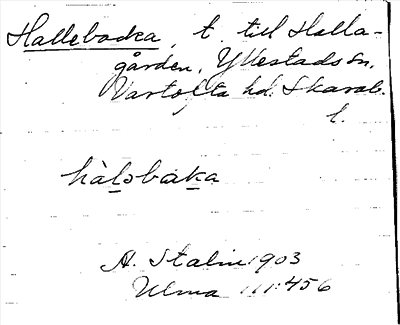 Hallebacka, t. till Halla-
gården, Yllestads sn,
Vartofta hd. Skarab.
l.
hàlebaka
A. Stalin 1903
Ulma 111:456